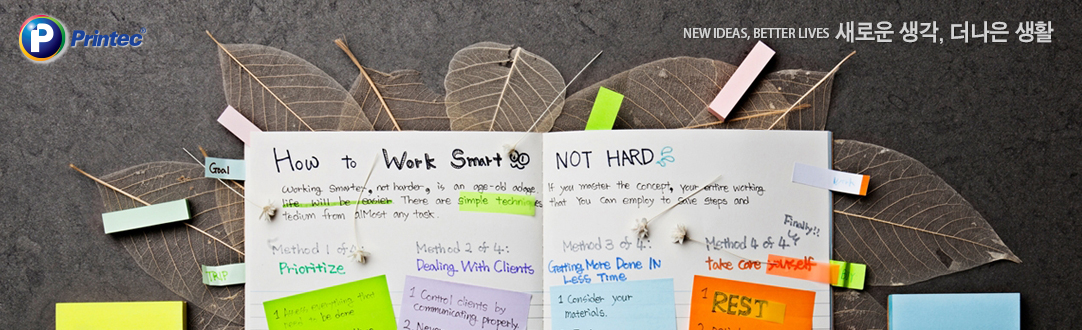 Printec
NEW IDEAS, BETTER LIVES 새로운 생각, 더나은 생활
How to Work Smart NOT HARD
Goal
Working Smarter, not harder, is an age-old adage. If you master the concept, your entire working
life will be easier There are simple techniques that You can employ to save steps and
tedium from alMost any task.
Finally!!
Method 1 of 4: Method 2 of 4: Method 3 of 4: Method 4 of 4
Prioritize Dealing With Clients Getting More Done IN Less Time take care yourself
TRIP
1 Assess everything that need to be done
1 Control clients by communicating properly.
1 Consider your materials.
1 REST
2
2
2